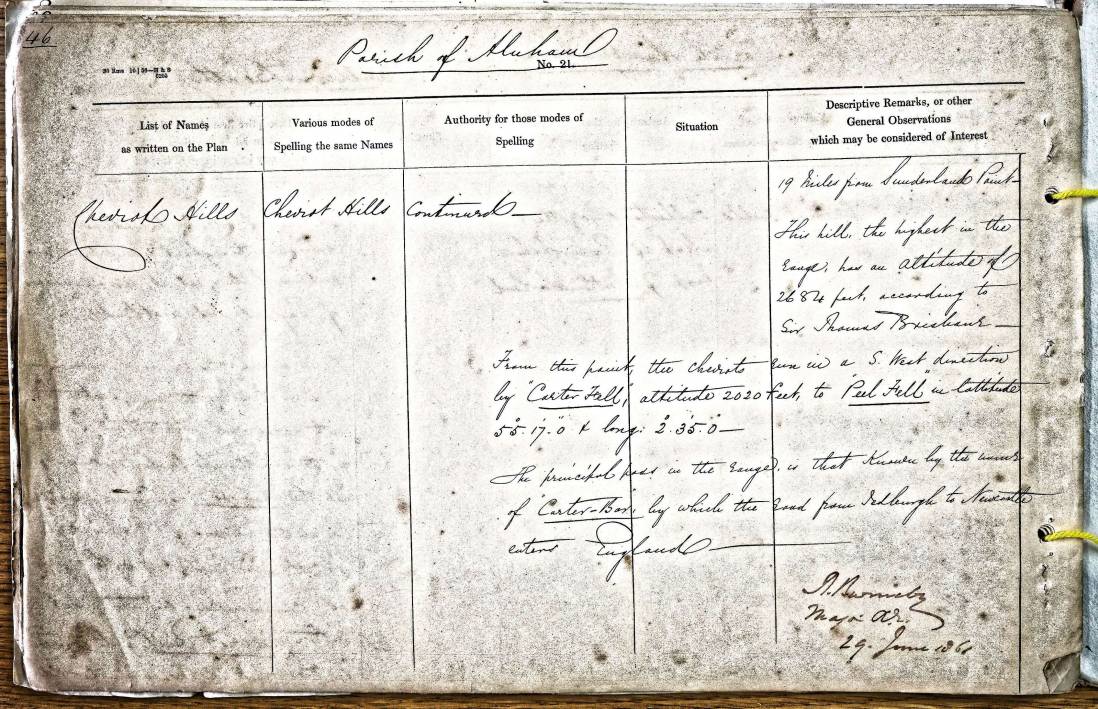 46
Parish of Alnham
No. 21.
List of Names
as written on the Plan
Various modes of
Spelling the same Names
Authority for those modes of
Spelling
Situation
Descriptive Remarks, or other
General Observations
which may be considered of Interest
Cheviot Hills
Cheviot Hills
Continued —
19 Miles from Sunderland Point —
This hill, the highest in the
range, has an altitude of
2684 feet, according to
Sir Thomas Brisbane —
From this point, the Cheviots run in a S. West direction
by "Carter Fell", altitude 2020 feet, to "Peel Fell" in lattitude
55°.17'.0" & long: 2°.35'.0 —
The principal pass in the range, is that Known by the name
of "Carter-Bar", by which the road from Jedburgh to Newcastle
enters England —
Burnaby
Major R.E.
29. June 186